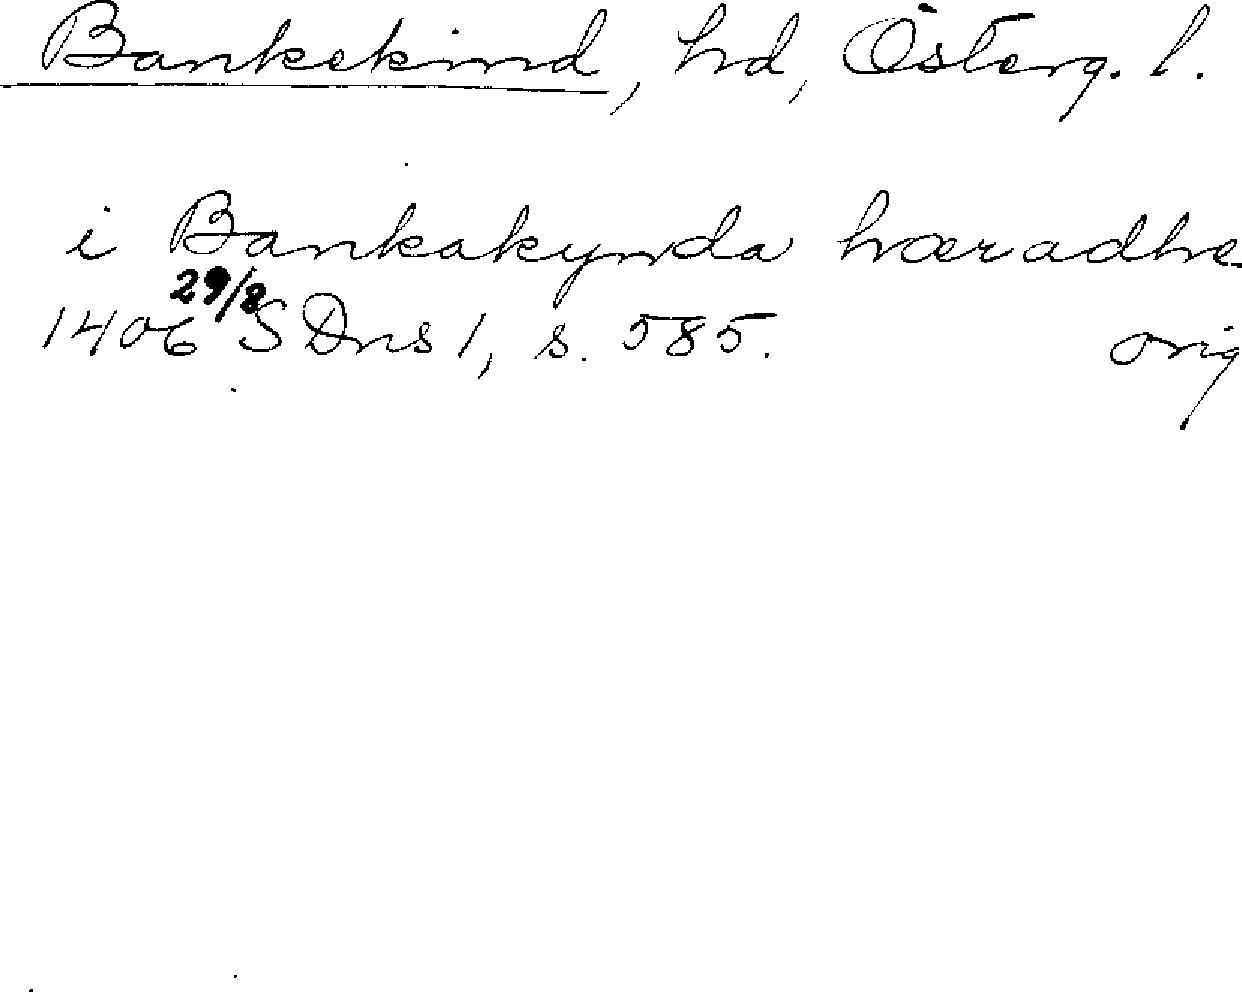 Bankekind, hd, Österg. l.
i Bankakynda hæradhe
1406 29/8 SDns 1, s. 585. orig